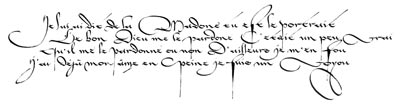 Je lui ai dit de la Madone tu es le portrait
Le bon Dieu me le pardone C'était un peu Vrai
Qu'il me le pardonne ou non D'ailleurs je m'en fou
J'ai déjà mon âme en Peine je suis un Voyou